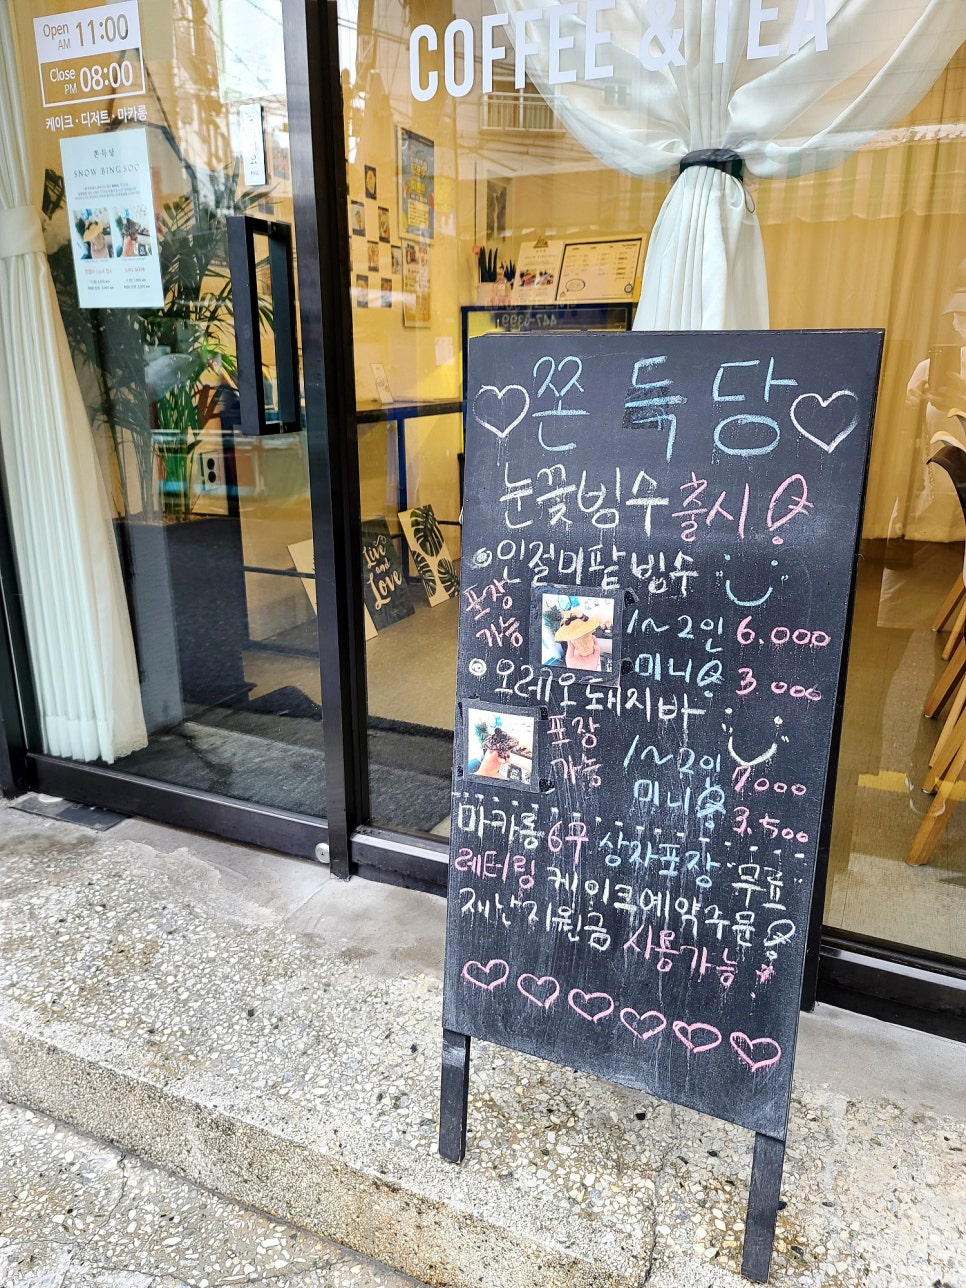 COFFEE & TEA
Open AM 11:00
Close PM 08:00
케이크 · 디저트 · 마카롱
쫀득당
SNOW BINGSOO
447-6399
Live
and
LOVE
쫀득당
눈꽃빙수 출시!
인절미팥빙수
포장
가능
1~2인 6.000
미니 3.000
오레오돼지바
포장
가능
1~2인 7.000
미니 3.500
마카롱 6구 상자포장 무료
레터링 케이크예약주문
재난지원금 사용가능!